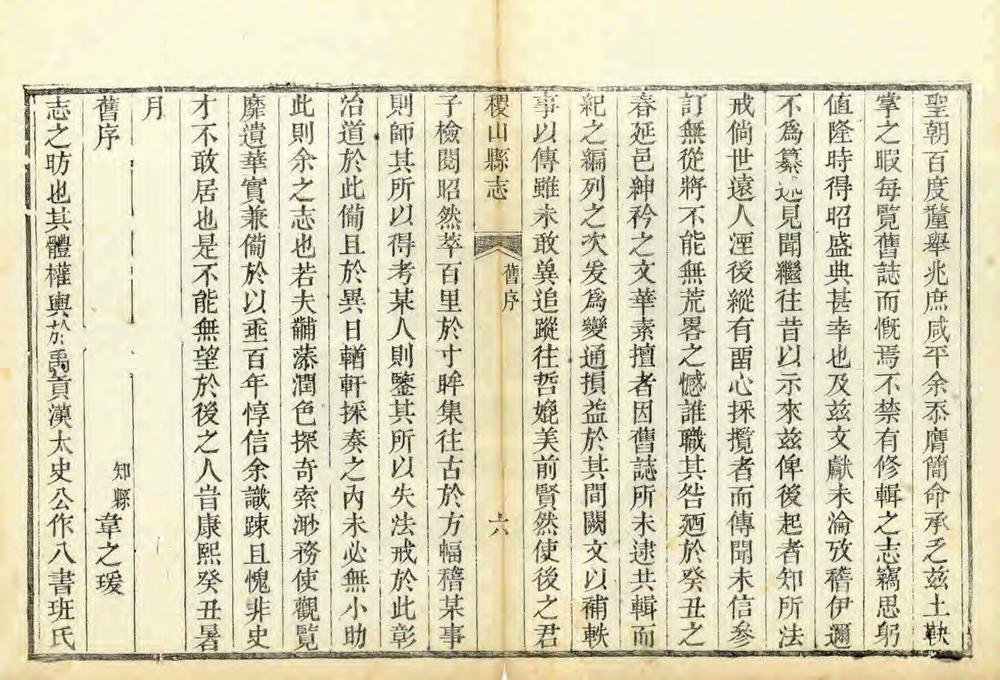 聖朝百度釐舉兆庶咸平余忝膺簡命承乏兹土鞅
掌之暇每覽舊誌而慨焉不禁有修輯之志竊思躬
值隆時得昭盛典甚幸也及兹文獻未淪攷稽伊邇
不爲纂述見聞繼往昔以示來兹俾後起者知所法
戒倘世遠人湮後縱有畱心採攬者而傳聞未信參
訂無從將不能無荒畧之憾誰職其咎廼於癸丑之
春延邑紳衿之文華素擅者因舊誌所未逮共輯而
紀之編列之次发爲變通損益於其間闕文以補軼
事以傳雖未敢冀追蹤往哲媲美前賢然使後之君
稷山縣志
舊序
六
子檢閱昭然萃百里於寸眸集往古於方幅稽某事
則師其所以得考某人則鑒其所以失法戒於此彰
治道於此備且於異日輶軒採奏之內未必無小助
此則余之志也若夫黼藻潤色探奇索渺務使觀覽
靡遺華實兼備於以垂百年惇信余識踈且愧非史
才不敢居也是不能無望於後之人旹康熙癸丑暑
月
舊序
知縣 韋之瑗
志之昉也其體權輿於禹貢漢太史公作八書班氏